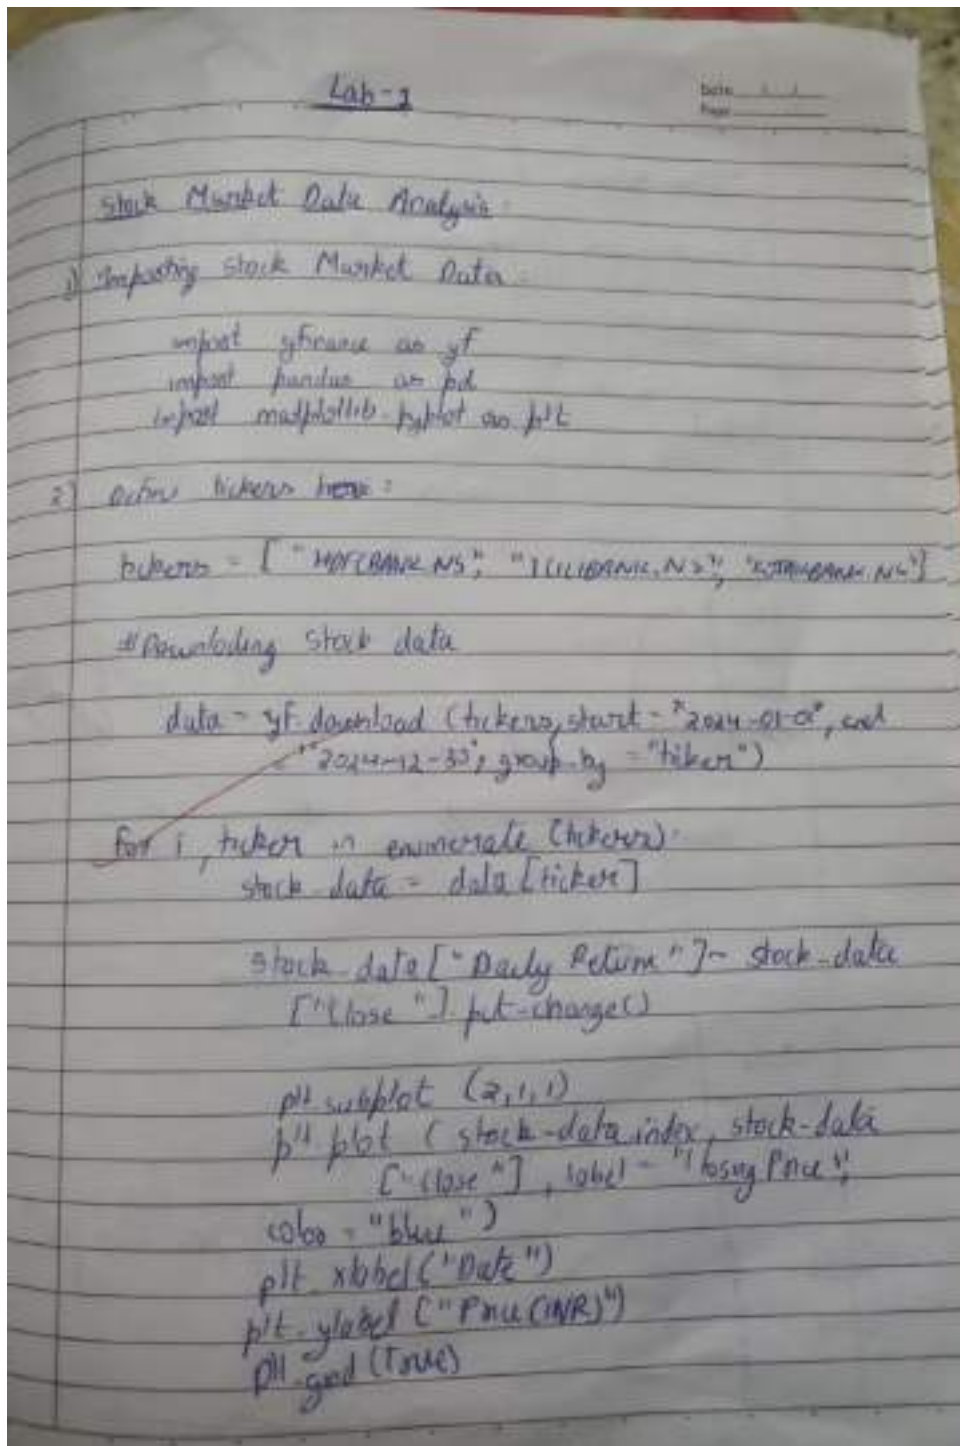 Lab-1
Date
Page
Stock Market Data Analysis
1) Importing Stock Market Data
import yfinance as yf
import pandas as pd
import matplotlib.pyplot as plt
2) Define tickers here:
tickers = [ "HDFCBANK.NS", "ICICIBANK.NS", "KOTAKBANK.NS"]
#Downloding stock data
data = yf.download (tickers, start = "2024-01-01", end
= "2024-12-30", group-by = "ticker")
for i, ticker in enumerate (tickers):
stock-data = data [ticker]
stock-data ["Daily Return"] = stock-data
["Close"].pct-change()
plt.subplot (2,1,1)
plt.plot (stock-data.index, stock-data
["Close"], label = "Closing Price",
color = "blue")
plt.xlabel ("Date")
plt.ylabel ("Price (INR)")
plt.grid (True)